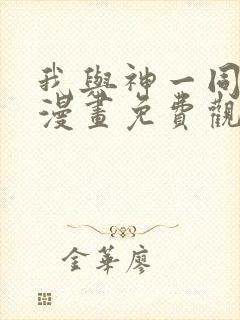 我與神一同
漫畫免費觀
金華廖